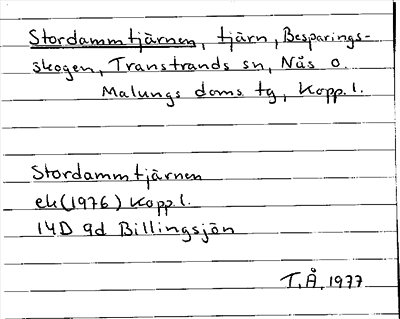 Stordammtjärnen, tjärn, Besparings-
skogen, Transtrands sn, Nås o.
Malungs doms tg, Kopp. l.
Stordammtjärnen
ek (1976) Kopp. l.
14D 9d Billingsjön
T. Å. 1977